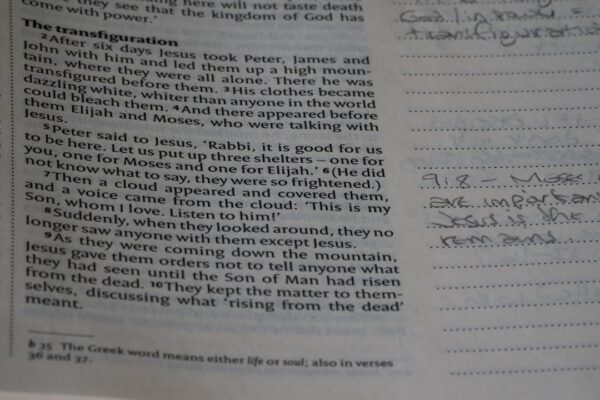 ding here will not taste death
they see that the kingdom of God has
come with power.'
The transfiguration
2After six days Jesus took Peter, James and
John with him and led them up a high moun-
tain, where they were all alone. There he was
transfigured before them. 3His clothes became
dazzling white, whiter than anyone in the world
could bleach them. 4And there appeared before
them Elijah and Moses, who were talking with
Jesus.
5Peter said to Jesus, 'Rabbi, it is good for us
to be here. Let us put up three shelters – one for
you, one for Moses and one for Elijah.' 6(He did
not know what to say, they were so frightened.)
7Then a cloud appeared and covered them,
and a voice came from the cloud: 'This is my
Son, whom I love. Listen to him!'
8Suddenly, when they looked around, they no
longer saw anyone with them except Jesus.
9As they were coming down the mountain,
Jesus gave them orders not to tell anyone what
they had seen until the Son of Man had risen
from the dead. 10They kept the matter to them-
selves, discussing what 'rising from the dead'
meant.
b 35 The Greek word means either life or soul; also in verses
36 and 37.
God
transfiguratio
9:8 – Moses
are importan
Jesus is the
remains